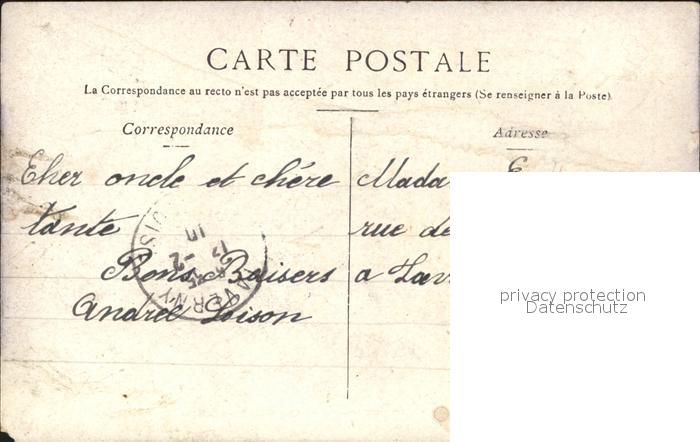 CARTE POSTALE
La Correspondance au recto n'est pas acceptée par tous les pays étrangers (Se renseigner à la Poste)
Correspondance
Adresse
Cher oncle et chére
tante
Bons Baisers
André Loison
Mada
rue de
a Lav
TAVERNY
privacy protection
Datenschutz